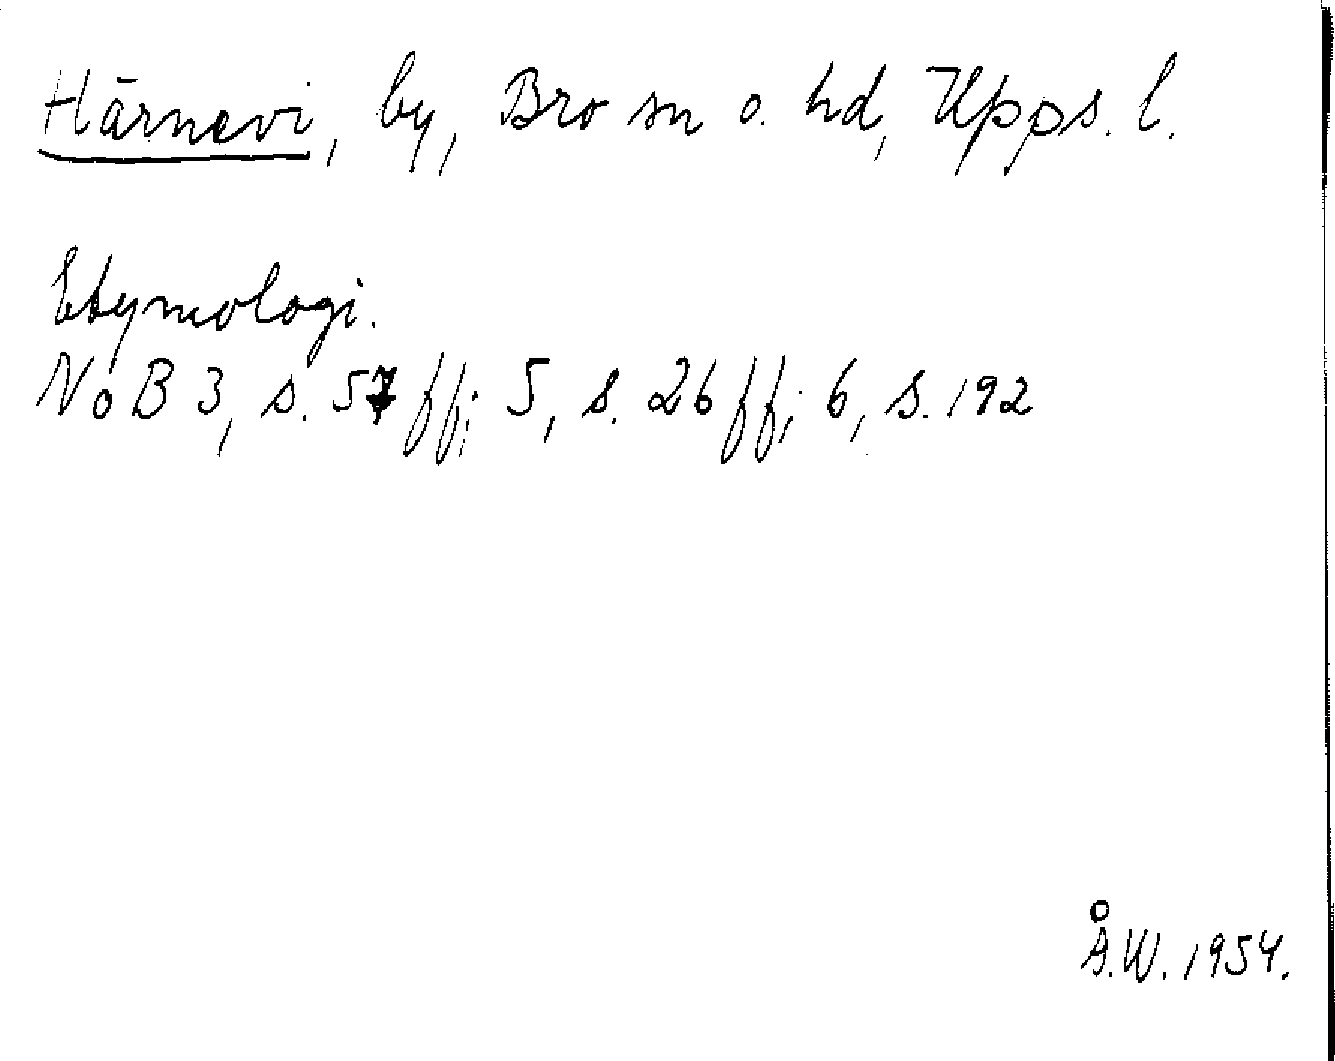 Härnevi, by, Bro sn o. hd, Upps. l.
Etymologi.
NoB 3, s. 57 ff; 5, s. 26 ff; 6, s. 192
Å.W. 1954.